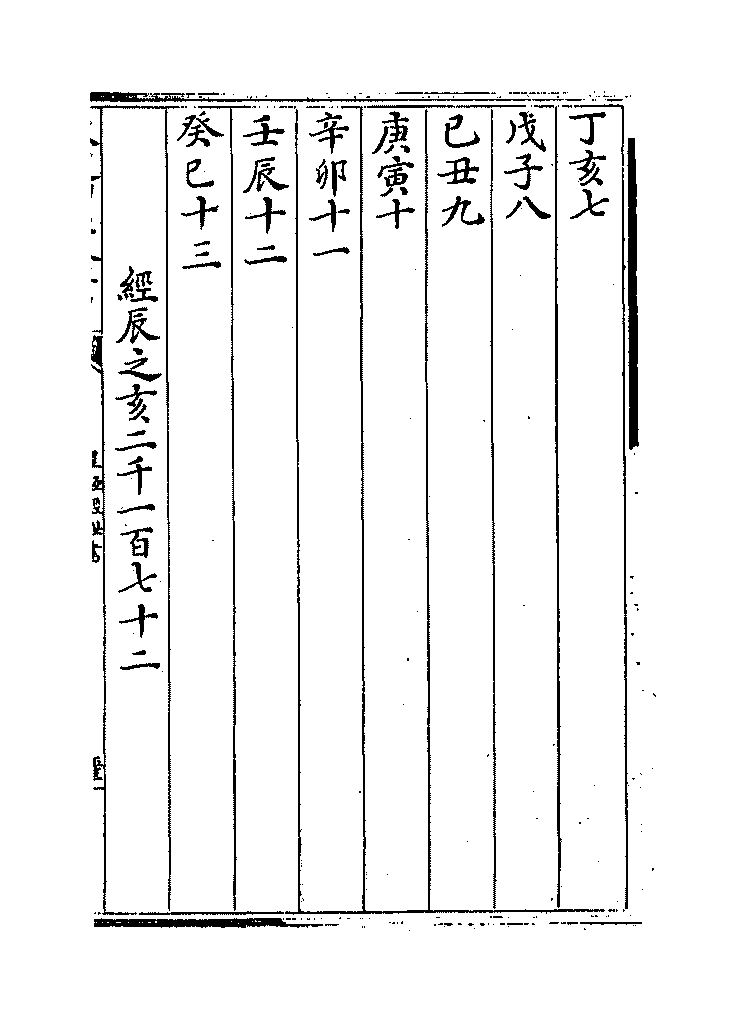 丁亥七
戊子八
己丑九
庚寅十
辛卯十一
壬辰十二
癸巳十三
經辰之亥二千一百七十二
皇極經世書